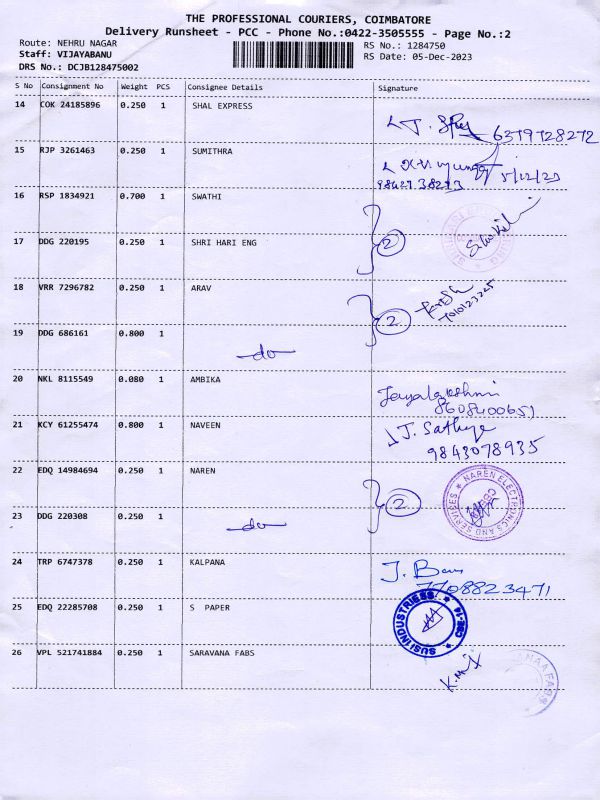 THE PROFESSIONAL COURIERS, COIMBATORE
Delivery Runsheet - PCC - Phone No.:0422-3505555 - Page No.:2
Route: NEHRU NAGAR
RS No.: 1284750
Staff: VIJAYABANU
RS Date: 05-Dec-2023
DRS No.: DCJB128475002
S No Consignment No Weight PCS Consignee Details Signature
14 COK 24185896 0.250 1 SHAL EXPRESS
6379728272
15 RJP 3261463 0.250 1 SUMITHRA
5/12/23
16 RSP 1834921 0.700 1 SWATHI
2
17 DDG 220195 0.250 1 SHRI HARI ENG
18 VRR 7296782 0.250 1 ARAV
2
19 DDG 686161 0.800 1
do
20 NKL 8115549 0.080 1 AMBIKA
Jayalakshmi
8608400651
21 KCY 61255474 0.800 1 NAVEEN
J. Sathya
9843078935
22 EDQ 14984694 0.250 1 NAREN
2
NAREN ELECTRONICS AND SERVICES
23 DDG 220308 0.250 1
do
24 TRP 6747378 0.250 1 KALPANA
7708823471
25 EDQ 22285708 0.250 1 S PAPER
SUSI INDUSTRIESS
26 VPL 521741884 0.250 1 SARAVANA FABS